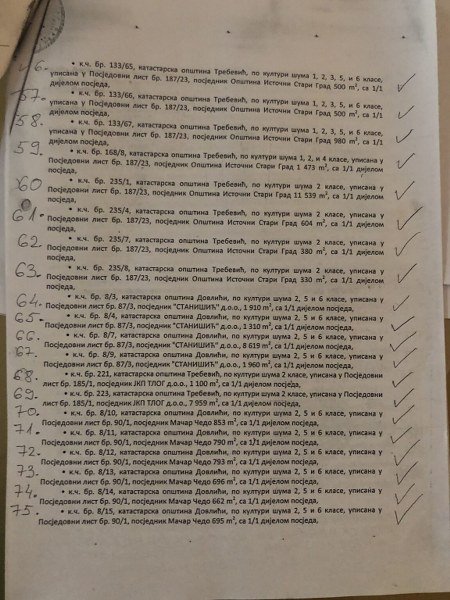 56. • к.ч. бр. 133/65, катастарска општина Требевић, по култури шума 1, 2, 3, 5, и 6 класе,
уписана у Посједовни лист бр. 187/23, посједник Општина Источни Стари Град 500 m², са 1/1
дијелом посједа,
57. • к.ч. бр. 133/66, катастарска општина Требевић, по култури шума 1, 2, 3, 5, и 6 класе,
уписана у Посједовни лист бр. 187/23, посједник Општина Источни Стари Град 500 m², са 1/1
дијелом посједа,
58. • к.ч. бр. 133/67, катастарска општина Требевић, по култури шума 1, 2, 3, 5, и 6 класе,
уписана у Посједовни лист бр. 187/23, посједник Општина Источни Стари Град 980 m², са 1/1
дијелом посједа,
59. • к.ч. бр. 168/8, катастарска општина Требевић, по култури шума 1, 2, и 4 класе, уписана у
Посједовни лист бр. 187/23, посједник Општина Источни Стари Град 1 473 m², са 1/1 дијелом
посједа,
60 • к.ч. бр. 235/1, катастарска општина Требевић, по култури шума 2 класе, уписана у
Посједовни лист бр. 187/23, посједник Општина Источни Стари Град 11 539 m², са 1/1 дијелом
посједа,
61. • к.ч. бр. 235/4, катастарска општина Требевић, по култури шума 2 класе, уписана у
Посједовни лист бр. 187/23, посједник Општина Источни Стари Град 604 m², са 1/1 дијелом
посједа,
62 • к.ч. бр. 235/7, катастарска општина Требевић, по култури шума 2 класе, уписана у
Посједовни лист бр. 187/23, посједник Општина Источни Стари Град 380 m², са 1/1 дијелом
посједа,
63. • к.ч. бр. 235/8, катастарска општина Требевић, по култури шума 2 класе, уписана у
Посједовни лист бр. 187/23, посједник Општина Источни Стари Град 330 m², са 1/1 дијелом
посједа,
64. • к.ч. бр. 8/3, катастарска општина Довлићи, по култури шума 2, 5 и 6 класе, уписана у
Посједовни лист бр. 87/3, посједник "СТАНИШИЋ" д.о.о., 1 910 m², са 1/1 дијелом посједа,
65. • к.ч. бр. 8/4, катастарска општина Довлићи, по култури шума 2, 5 и 6 класе, уписана у
Посједовни лист бр. 87/3, посједник "СТАНИШИЋ" д.о.о., 1 310 m², са 1/1 дијелом посједа,
66. • к.ч. бр. 8/7, катастарска општина Довлићи, по култури шума 2, 5 и 6 класе, уписана у
Посједовни лист бр. 87/3, посједник "СТАНИШИЋ" д.о.о., 8 615 m², са 1/1 дијелом посједа,
67. • к.ч. бр. 8/9, катастарска општина Довлићи, по култури шума 2, 5 и 6 класе, уписана у
Посједовни лист бр. 87/3, посједник "СТАНИШИЋ" д.о.о., 1 960 m², са 1/1 дијелом посједа,
68. • к.ч. бр. 221, катастарска општина Требевић, по култури шума 2 класе, уписана у Посједовни
лист бр. 185/1, посједник ЈКП ТЛОГ д.о.о., 1 100 m², са 1/1 дијелом посједа,
69. • к.ч. бр. 223, катастарска општина Требевић, по култури шума 2 класе, уписана у Посједовни
лист бр. 185/1, посједник ЈКП ТЛОГ д.о.о., 7 959 m², са 1/1 дијелом посједа,
70. • к.ч. бр. 8/10, катастарска општина Довлићи, по култури шума 2, 5 и 6 класе, уписана у
Посједовни лист бр. 90/1, посједник Мачар Чедо 853 m², са 1/1 дијелом посједа,
71. • к.ч. бр. 8/11, катастарска општина Довлићи, по култури шума 2, 5 и 6 класе, уписана у
Посједовни лист бр. 90/1, посједник Мачар Чедо 790 m², са 1/1 дијелом посједа,
72. • к.ч. бр. 8/12, катастарска општина Довлићи, по култури шума 2, 5 и 6 класе, уписана у
Посједовни лист бр. 90/1, посједник Мачар Чедо 793 m², са 1/1 дијелом посједа,
73. • к.ч. бр. 8/13, катастарска општина Довлићи, по култури шума 2, 5 и 6 класе, уписана у
Посједовни лист бр. 90/1, посједник Мачар Чедо 696 m², са 1/1 дијелом посједа,
74. • к.ч. бр. 8/14, катастарска општина Довлићи, по култури шума 2, 5 и 6 класе, уписана у
Посједовни лист бр. 90/1, посједник Мачар Чедо 662 m², са 1/1 дијелом посједа,
75. • к.ч. бр. 8/15, катастарска општина Довлићи, по култури шума 2, 5 и 6 класе, уписана у
Посједовни лист бр. 90/1, посједник Мачар Чедо 695 m², са 1/1 дијелом посједа,